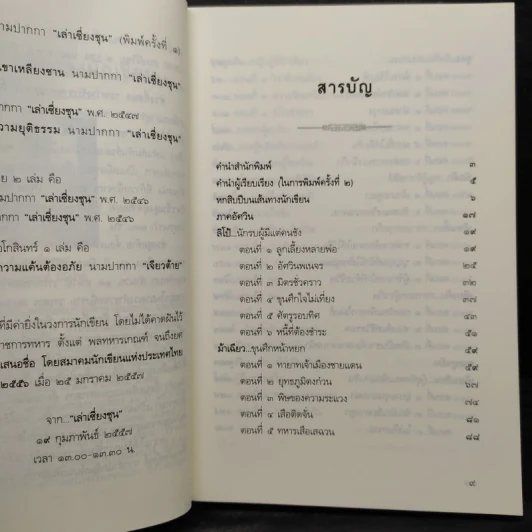 นามปากกา "เล่าเซี่ยงชุน" (พิมพ์ครั้งที่ ๑)
เขาเหลียงซาน นามปากกา "เล่าเซี่ยงชุน"
กา "เล่าเซี่ยงชุน" พ.ศ. ๒๕๔๗
วามยุติธรรม นามปากกา "เล่าเซี่ยงชุน"
๒ เล่ม คือ
"เล่าเซี่ยงชุน" พ.ศ. ๒๕๔๖
กา "เล่าเซี่ยงชุน" พ.ศ. ๒๕๔๖
โกสินทร์ ๑ เล่ม คือ
ความแค้นต้องอภัย นามปากกา "เจียวต้าย"
ที่มีค่ายิ่งในวงการนักเขียน โดยไม่ได้คาดฝันไว้
ราชการทหาร ตั้งแต่ พลทหารเกณฑ์ จนถึงยศ
เสนอชื่อ โดยสมาคมนักเขียนแห่งประเทศไทย
๒๕๕๖ เมื่อ ๒๕ มกราคม ๒๕๕๗
จาก..."เล่าเซี่ยงชุน"
๑๙ กุมภาพันธ์ ๒๕๕๗
เวลา ๑๓.๐๐-๑๓.๓๐ น.
สารบัญ
คำนำสำนักพิมพ์ ๓
คำนำผู้เรียบเรียง (ในการพิมพ์ครั้งที่ ๒) ๕
หกสิบปีบนเส้นทางนักเขียน ๖
ภาคอัศวิน ๑๗
ลิโป้...นักรบผู้มีแต่คนชัง ๑๙
ตอนที่ ๑ ลูกเลี้ยงหลายพ่อ ๑๙
ตอนที่ ๒ อัศวินพเนจร ๒๕
ตอนที่ ๓ มิตรชั่วคราว ๓๒
ตอนที่ ๔ ขุนศึกใจไม่เที่ยง ๓๗
ตอนที่ ๕ ศัตรูรอบทิศ ๔๓
ตอนที่ ๖ หนี้ที่ต้องชำระ ๕๑
ม้าเฉียว...ขุนศึกหน้าหยก ๕๙
ตอนที่ ๑ ทายาทเจ้าเมืองชายแดน ๕๙
ตอนที่ ๒ ยุทธภูมิตงก๋วน ๖๗
ตอนที่ ๓ พิษของความระแวง ๗๔
ตอนที่ ๔ เสือติดจั่น ๘๑
ตอนที่ ๕ ทหารเสือเสฉวน ๘๘
๙